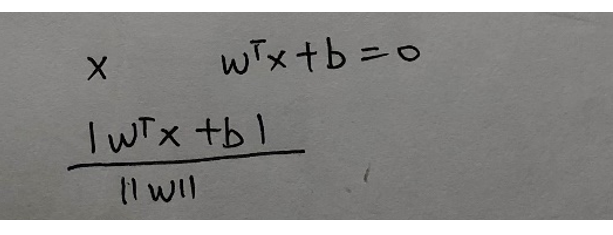 x wᵀx + b = 0
|wᵀx + b|
||w||